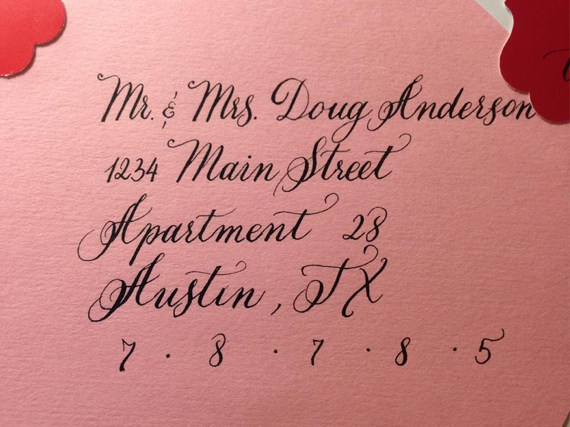 Mr. & Mrs. Doug Anderson
1234 Main Street
Apartment 28
Austin, TX
7 · 8 · 7 · 8 · 5